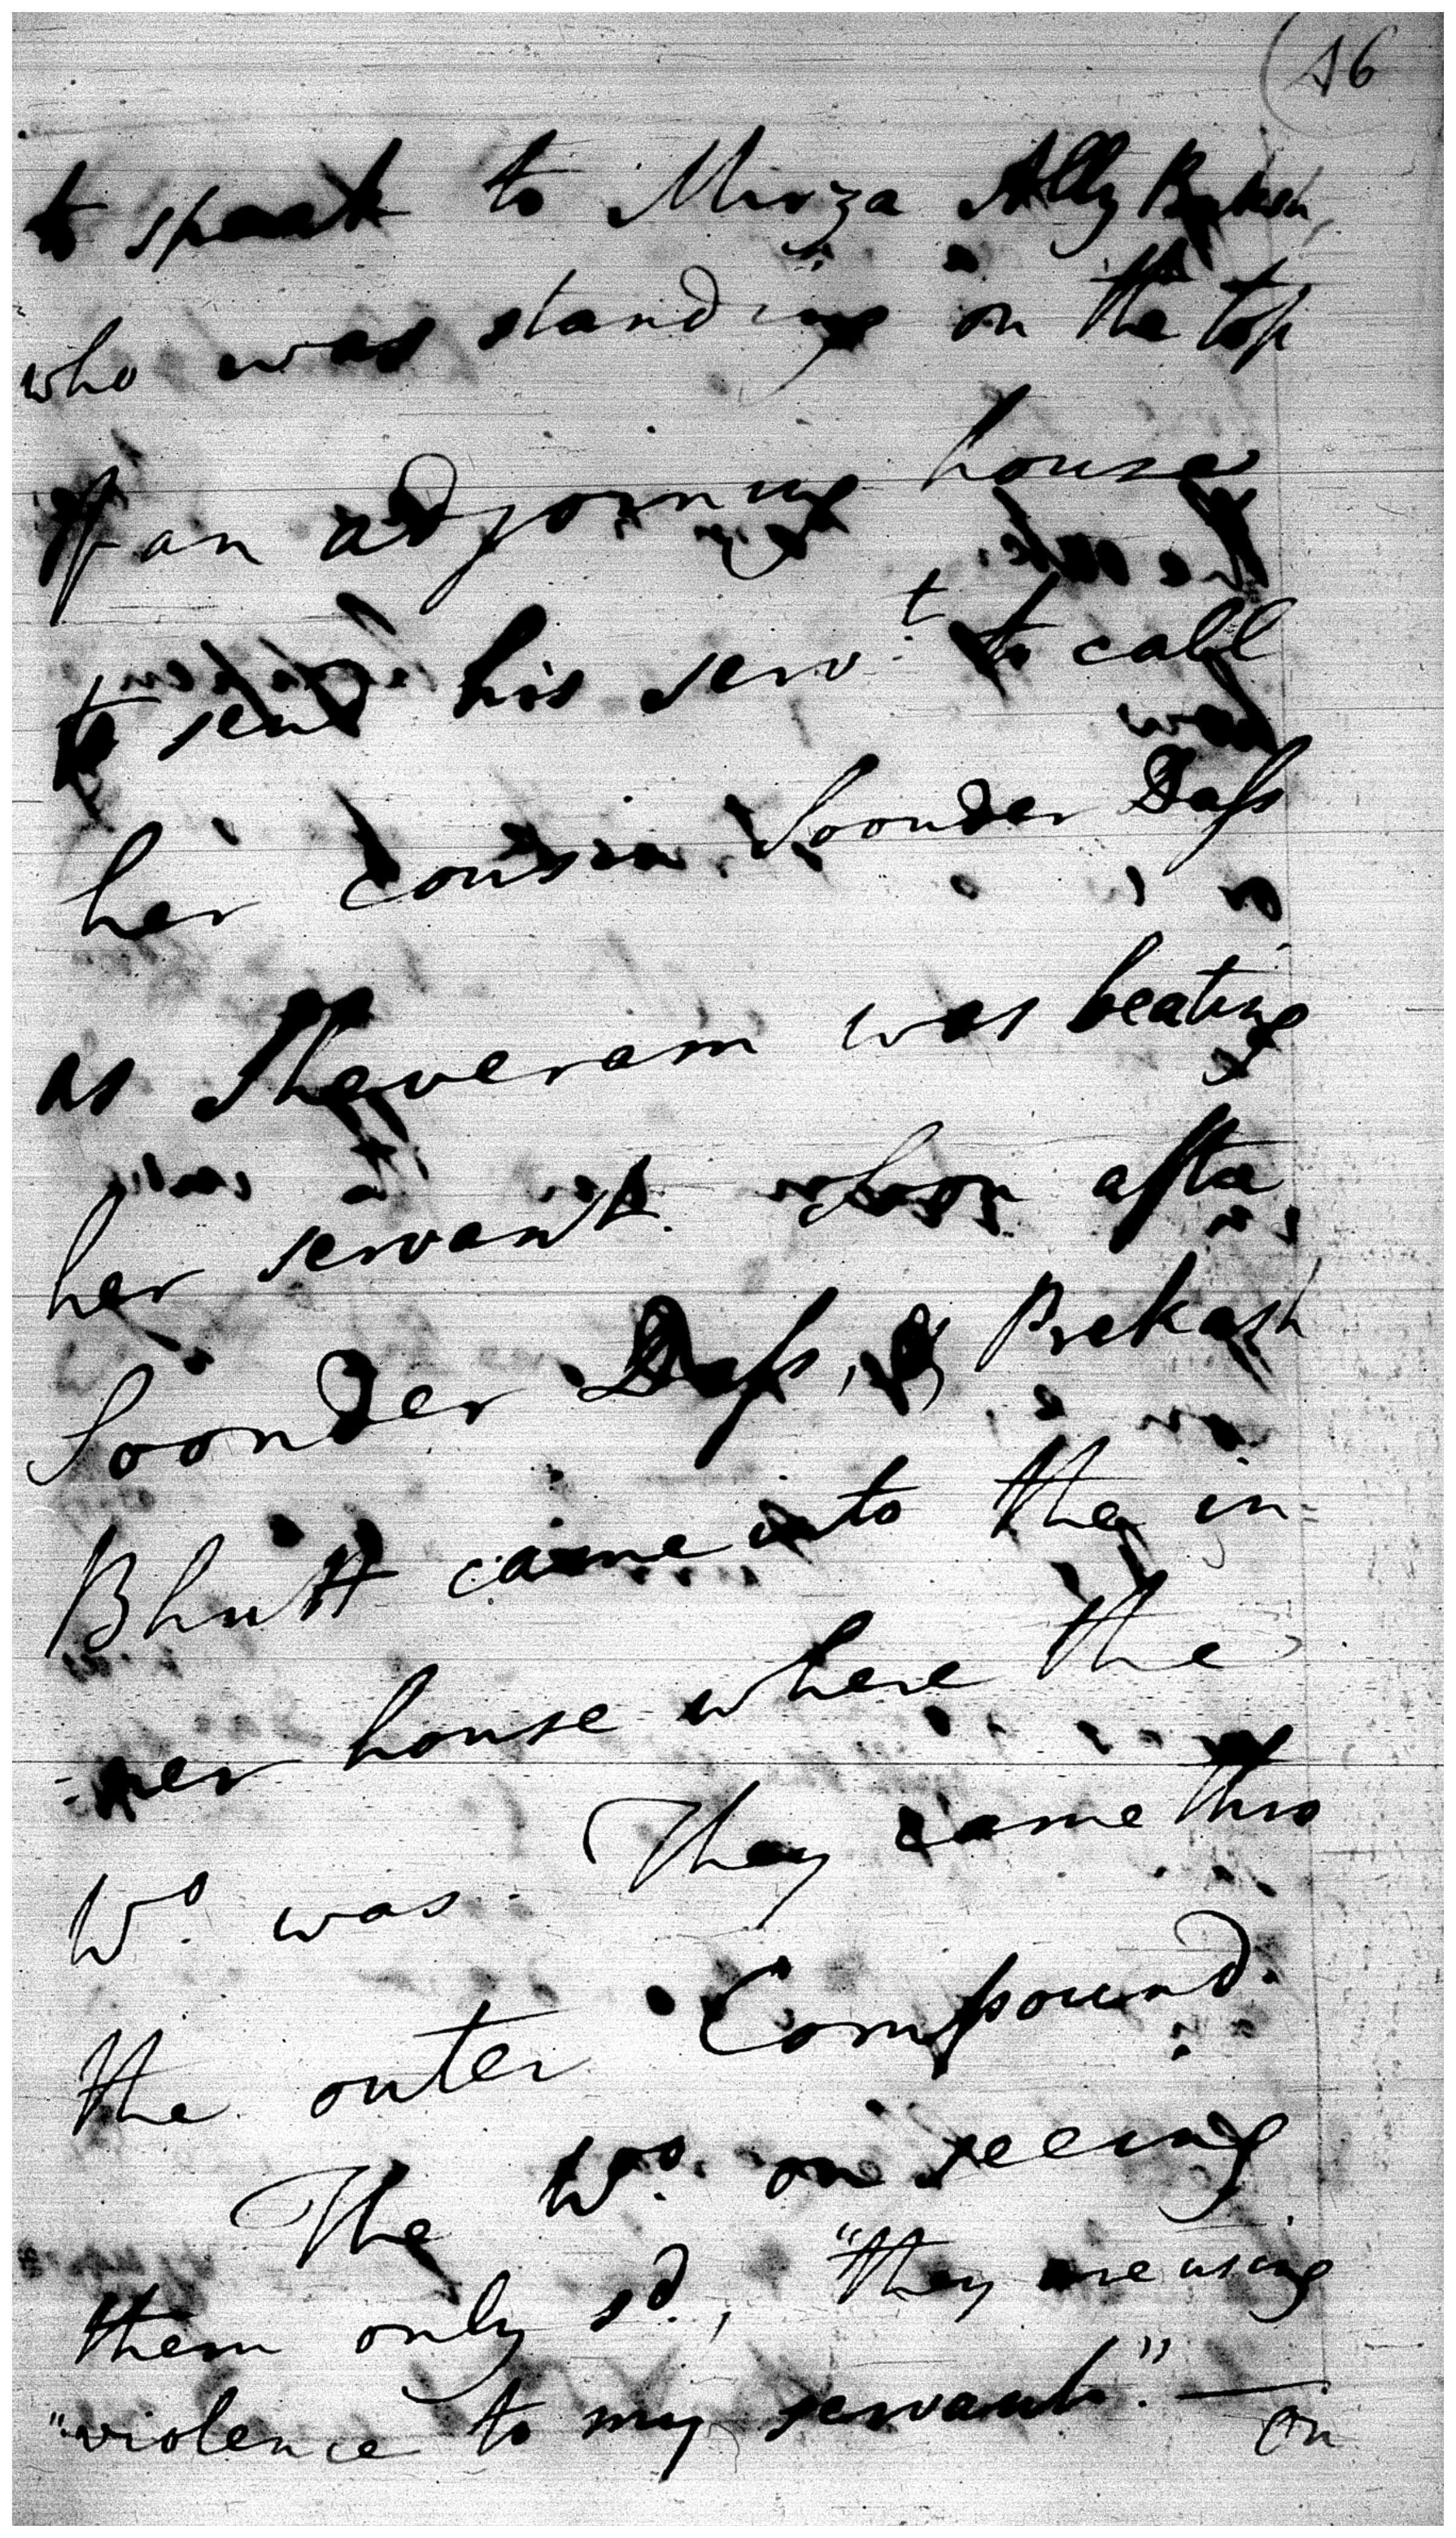 16
to speak to Mirza Ally Buksh,
who was standing on the top
of an adjoining house
to send his serv.t to call
her cousin Soonder Dass
as Sheveram was beating
her servant. Soon after
Soonder Dass, & Prekash
Bhutt came into the in=
=ner house where the
Wo. was. They came thro
the outer Compound.
The Wo. on seeing
them only sd., "they are using
"violence to my servants." —
On